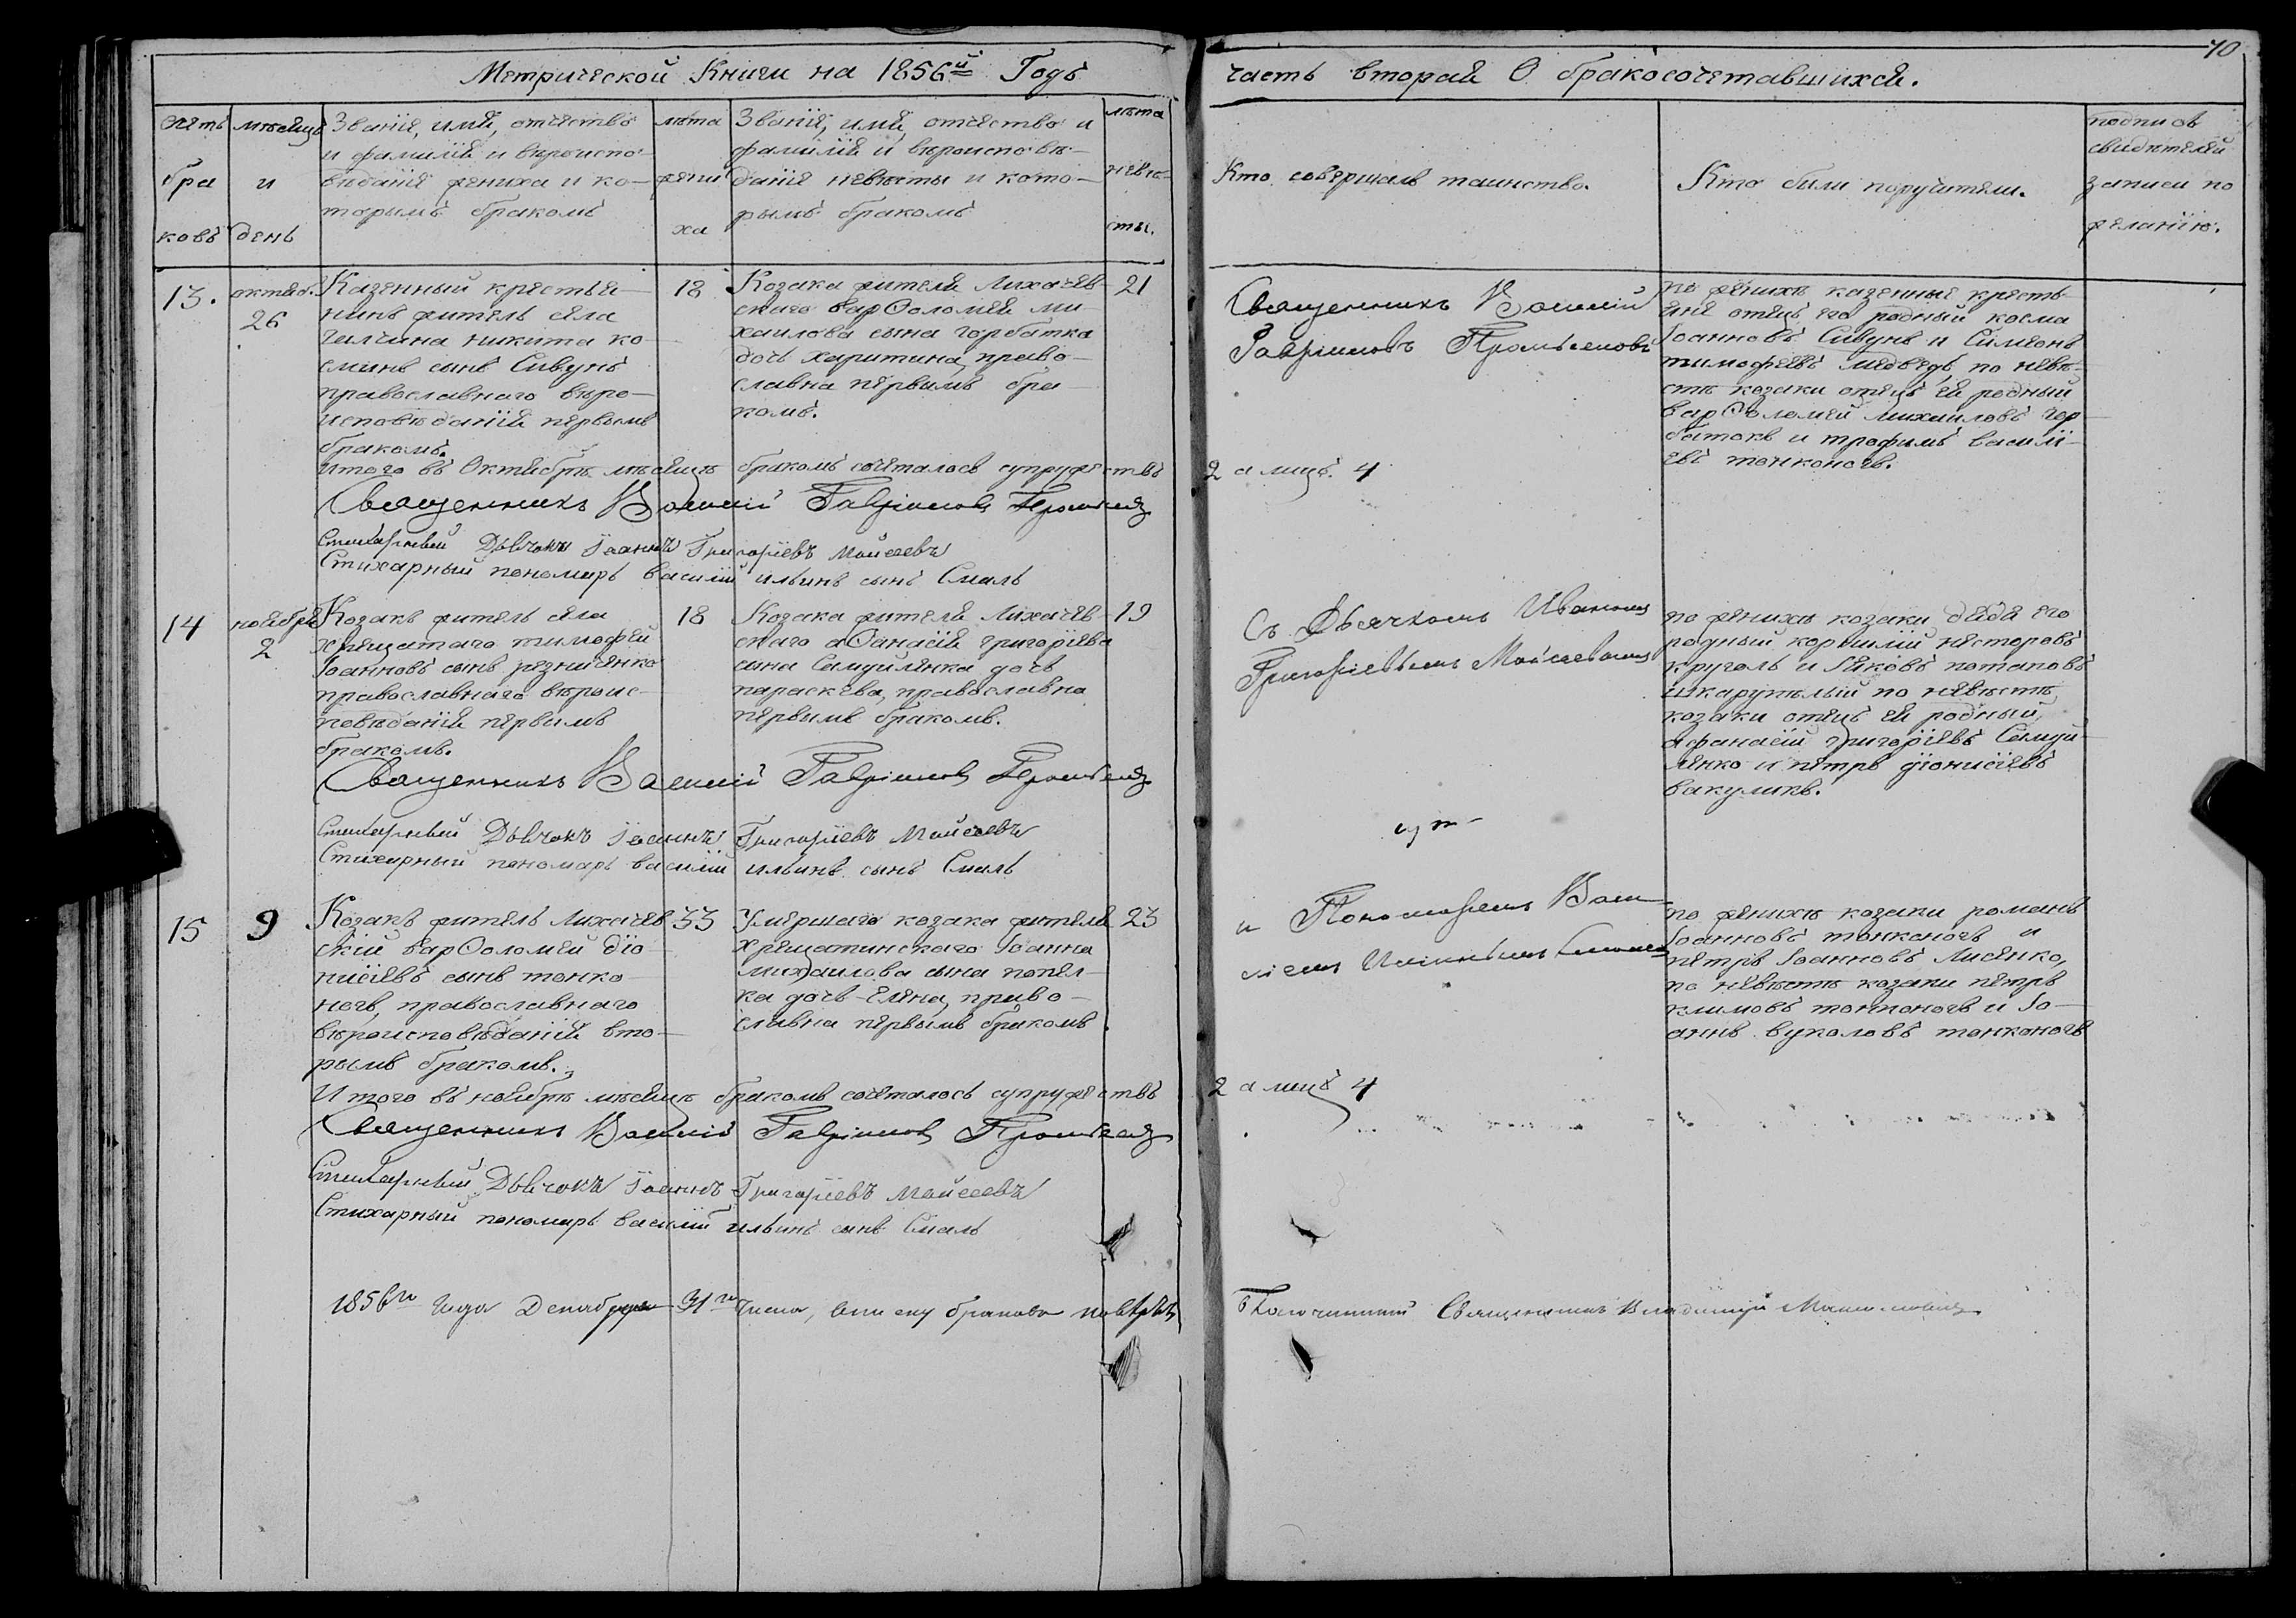 Метрической Книги на 1856й Годъ
часть вторая О бракосочетавшихся.
70
счетъ браковъ
мѣсяцъ и день
Званіе, имя, отчество
и фамилія и вѣроиспо-
вѣданіе жениха и ко-
торымъ бракомъ
лѣта жениха
Званіе, имя, отчество и
фамилія и вѣроисповѣ-
даніе невѣсты и кото-
рымъ бракомъ
лѣта невѣсты.
Кто совершалъ таинство.
Кто были поручители.
подписъ
свидѣтелей
записи по
желанію.
13.
октяб.
26
Казенный крестья-
нинъ житель села
Никита ко-
сминъ сынъ Сивунъ
православнаго вѣро-
исповѣданія первымъ
бракомъ.
18
Козака жителя Лихачев-
скаго варѲоломея ми-
хаилова сына горбатка
дочь харитина, право-
славна первымъ бра-
комъ.
21
Священникъ Василій
Гавріиловъ
по женихѣ казенные кресть-
яне отецъ его родный косма
Іоанновъ Сивунъ и Симеонъ
тимофеевъ медведь, по невѣ-
стѣ козаки отецъ ея родный
варѲоломей михаиловъ гор-
батокъ и трофимъ василі-
евъ тонконогъ.
Итого въ Октябрѣ мѣсяцѣ бракомъ сочеталось супружествъ 2 а лицъ 4
Священникъ Василій Гавріиловъ
Стихарный Дьячокъ Іоаннъ Григоріевъ Мойсеевъ
Стихарный пономарь василій ильинъ сынъ Смаль
14
ноября
2
Козакъ житель села
хрещатаго тимофей
Іоанновъ сынъ резниченко
православнаго вѣроис-
повѣданія первымъ
бракомъ.
18
Козака жителя Лихачев-
скаго аѲанасія григоріева
сына Самуйленка дочь
параскева, православна
первымъ бракомъ.
19
Съ Дьячкомъ Иваномъ
Григоріевымъ Мойсеевымъ
по женихѣ козаки дядя его
родный корнилій нестеровъ
круголь и Яковъ потаповъ
шкарупелый по невѣстѣ
козаки отецъ ея родный
афанасій григоріевъ Самуй-
ленко и петръ діонисіевъ
вакуликъ.
Священникъ Василій Гавріиловъ
Стихарный Дьячокъ Іоаннъ Григоріевъ Мойсеевъ
Стихарный пономарь василій ильинъ сынъ Смаль
15
9
Козакъ житель Лихачев-
скій варѲоломей діо-
нисіевъ сынъ тонко-
ногъ, православнаго
вѣроисповѣданія вто-
рымъ бракомъ.
33
Умершаго козака жителя
хрещатинскаго Іоанна
михаилова сына попел-
ка дочь Елена, право-
славна первымъ бракомъ
23
и Пономаремъ Васи-
ліемъ Ильинымъ
по женихѣ козаки романъ
Іоанновъ тонконогъ и
петръ Іоанновъ Лисенко,
по невѣстѣ козаки петръ
климовъ тонконогъ и Іо-
аннъ вуколовъ тонконогъ
Итого въ ноябрѣ мѣсяцѣ бракомъ сочеталось супружествъ 2 а лицъ 4
Священникъ Василій Гавріиловъ
Стихарный Дьячокъ Іоаннъ Григоріевъ Мойсеевъ
Стихарный пономарь василій ильинъ сынъ Смаль
1856го Года Декабря 31го Числа,
Благочинный Священникъ Владимиръ